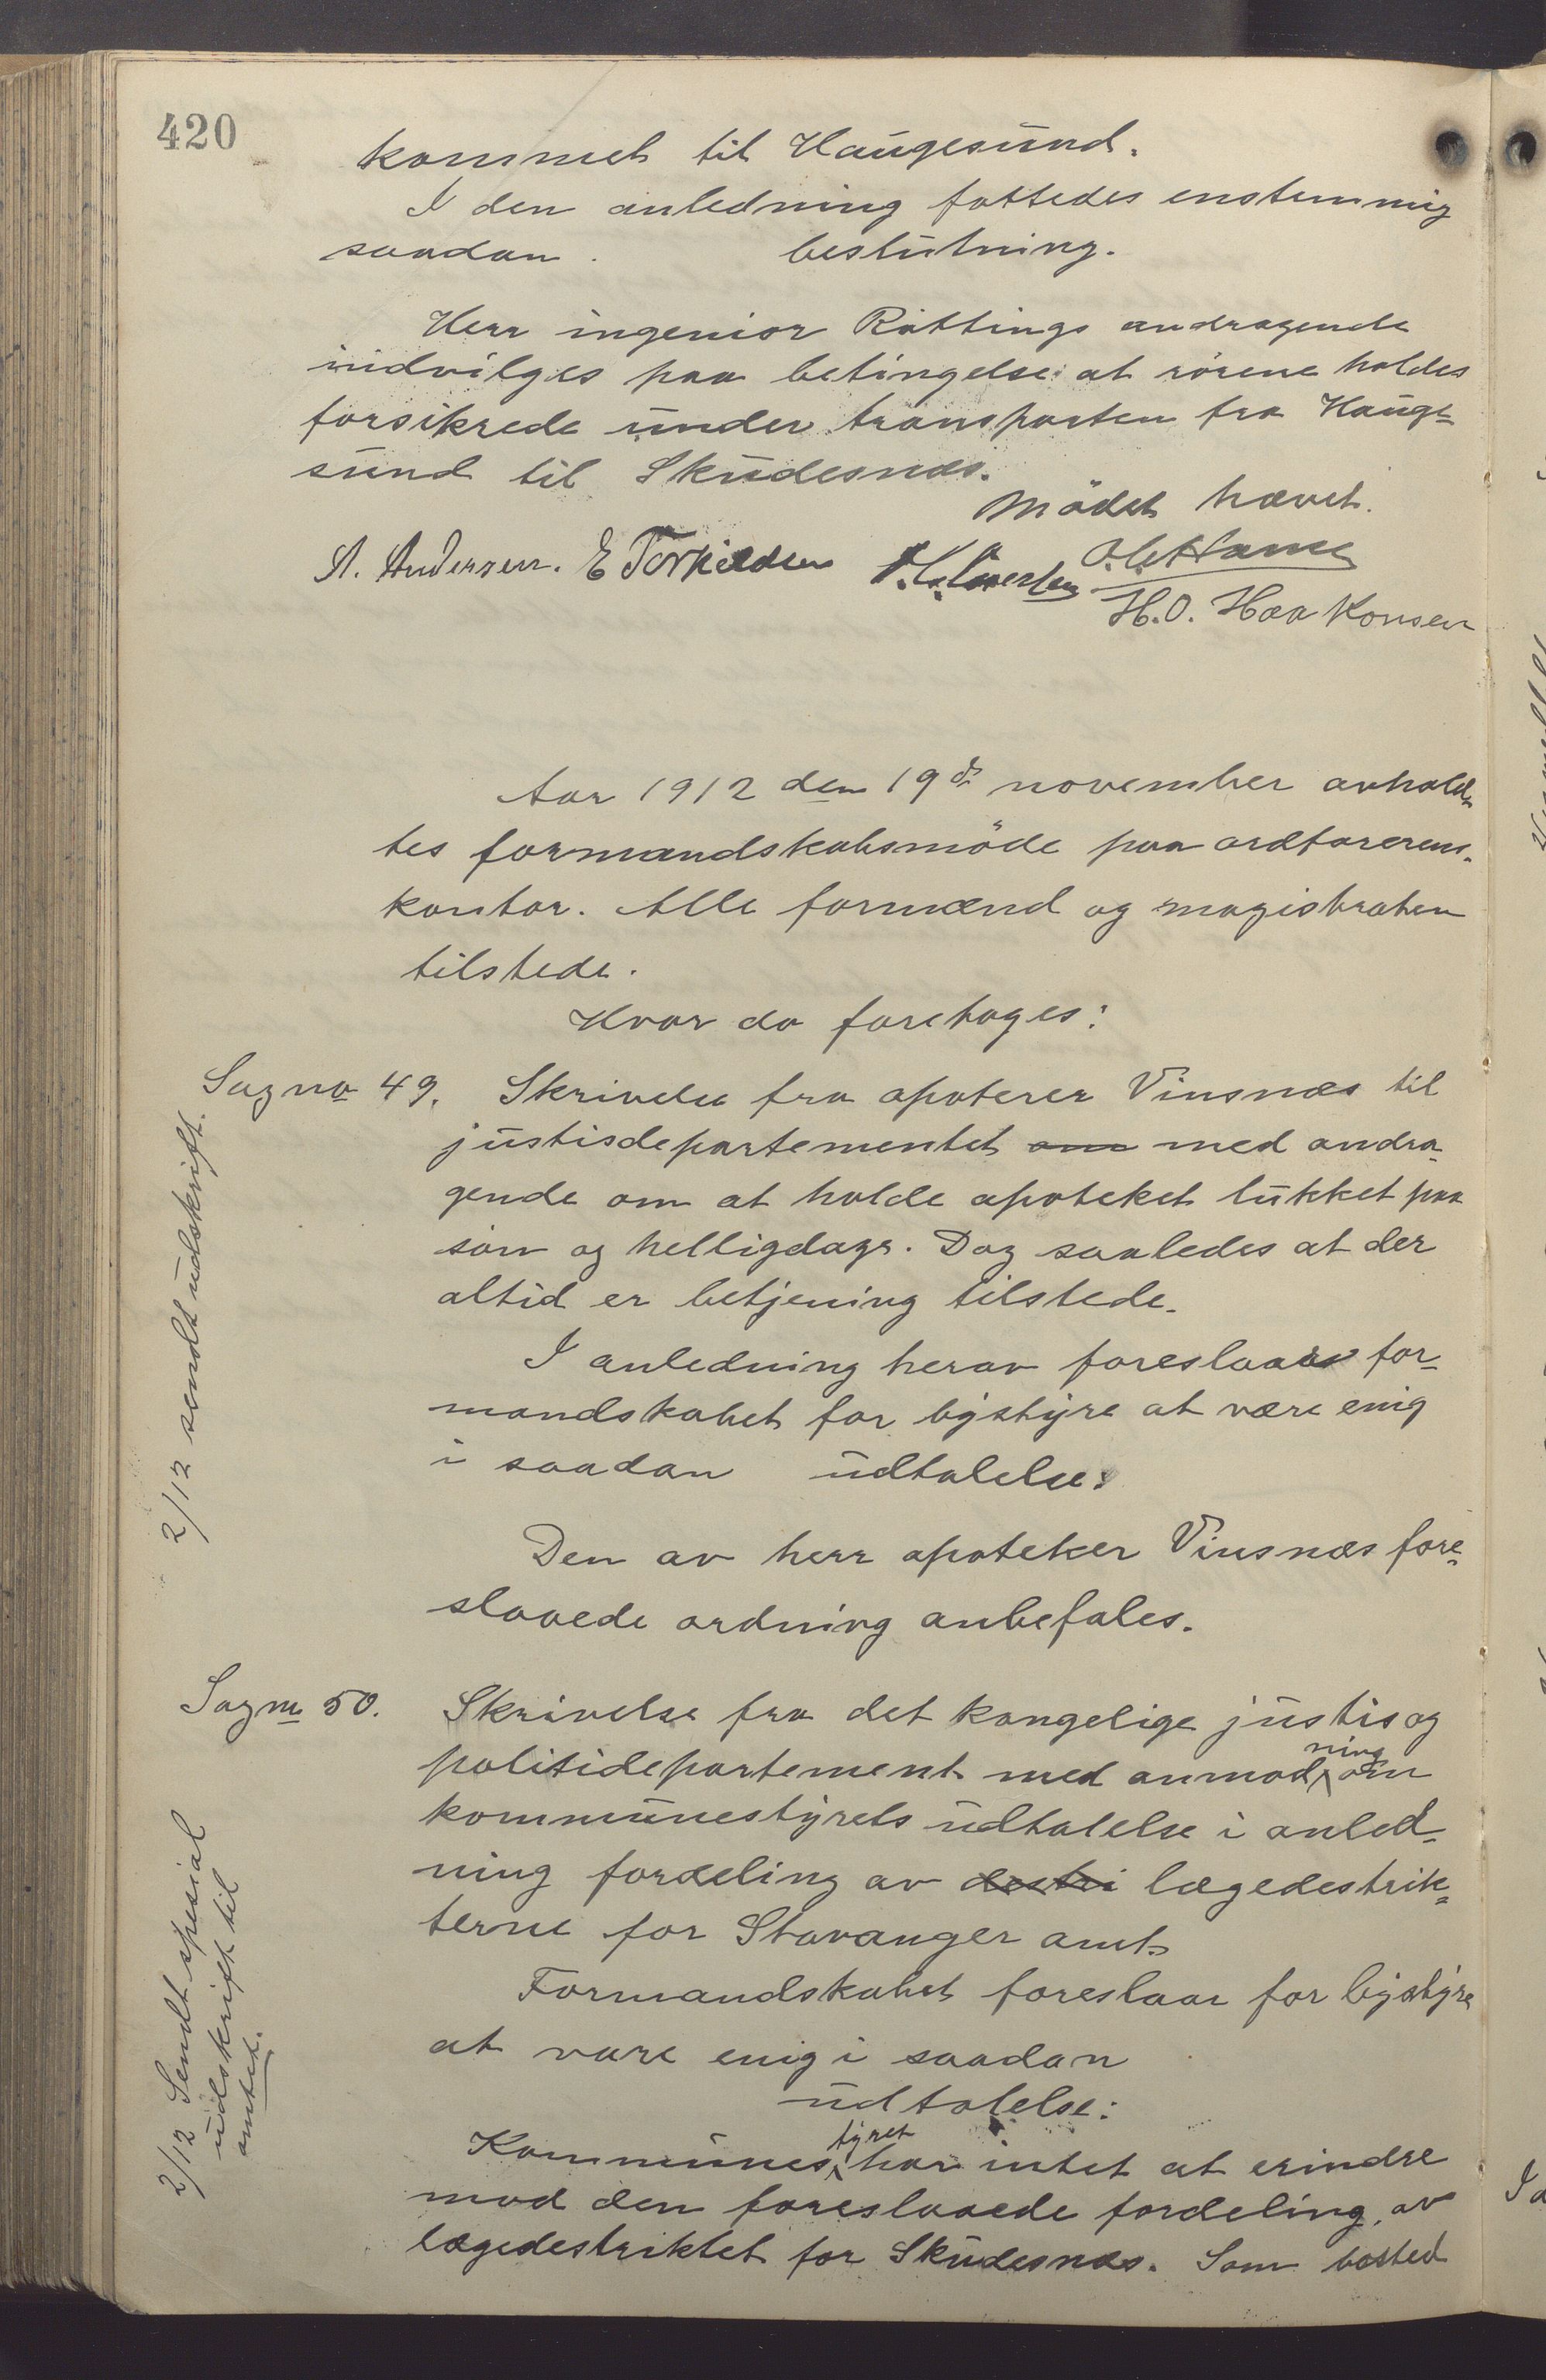 420
kommet til Haugesund.
I den anledning fattedes enstemmig
saadan beslutning.
Herr ingeniør Røttings andragende
indvilges paa betingelse at rörene holdes
forsikrede under transporten fra Hauge=
sund til Skudesnæs.
Mödet hævet.
A. Andersen. E Torkildsen
H. O. Haakonsen
Aar 1912 den 19de november avhold
tes formandskabsmöde paa ordförerens
kontor. Alle formænd og magistraten
tilstede.
Hvor da foretoges:
Sag no 49. Skrivelse fra apoterer Vinsnæs til
justisdepartementet om med andra-
gende om at holde apoteket lukket paa
søn og helligdage. Dog saaledes at der
altid er betjening tilstede.
I anledning herav foreslaar for-
mandskabet for bystyre at være enig
i saadan udtalelse:
Den av herr apoteker Vinsnæs fore-
slaaede ordning anbefales.
2/12 sendt udskrift.
Sag no 50. Skrivelse fra det kongelige justis og
politidepartement med anmodning om
kommunestyrets udtalelse i anled-
ning fordeling av destri lægedestrik=
terne for Stavanger amt.
Formandskabet foreslaar for bystyre
at være enig i saadan
udtalelse:
Kommunestyret har intet at erindre
mod den foreslaaede fordeling av
lægedestriktet for Skudesnæs. Som bosted
2/12 Sendt spesial
udskrift til
amtet.